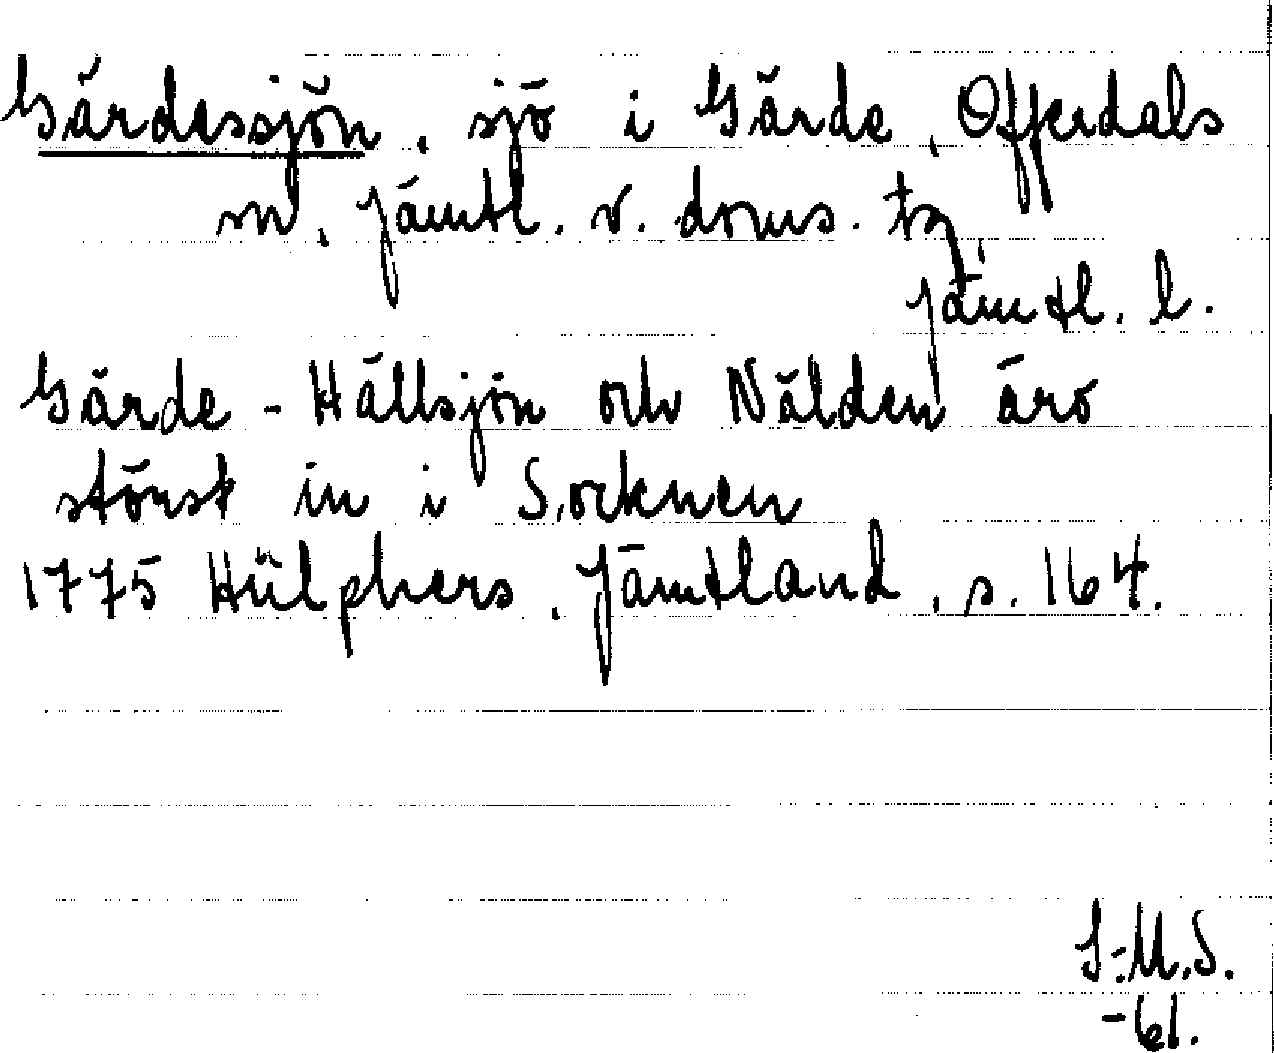 Gärdessjön, sjö i Gärde, Offerdals
sn, Jämtl. v. doms. tg,
Jämtl. l.
Gärde - Hällsjön och Nälden äro
störst in i Socknen
1775 Hülphers, Jämtland, s. 164.
S-M.S.
-61.